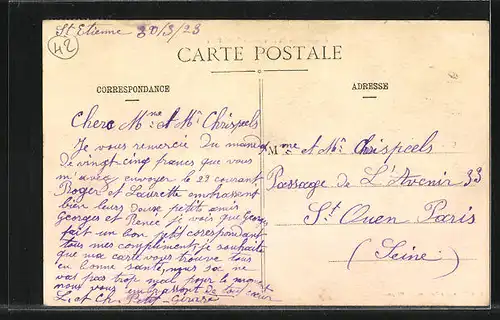 St Etienne 30/3/23
42
CARTE POSTALE
CORRESPONDANCE
ADRESSE
Chere Mme et Mr Chrispeels
Je vous remercie du mandat
de vingt cinq francs que vous
m'avez envoyer le 23 courant
Roger et Laurette embrassent
bien leurs petits amis
Georges et Renée je vois que Georges
fait un bon petit corespondant
tous mes compliment, je souhaite
que ma carte vous trouve tous
en bonne santé, nous sac ne
vas pas trop mal pour le moment
nous vous embrassont de tout cœur
L. et Ch. Petit-
Mme et Mr Chrispeels
Passage de L'Avenir 33
St Ouen Paris
(Seine)